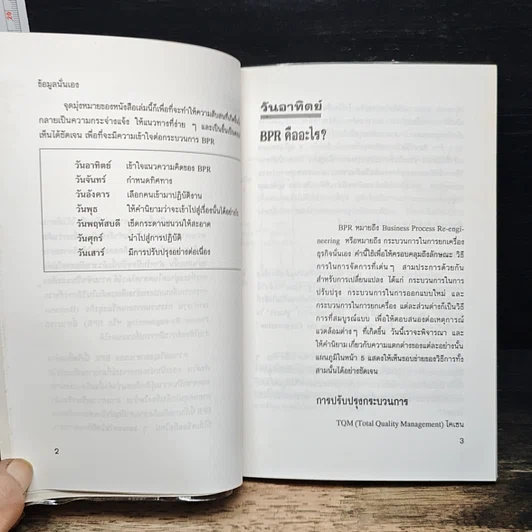 ข้อมูลนั่นเอง
จุดมุ่งหมายของหนังสือเล่มนี้ก็เพื่อที่จะทำให้ความสับสนที่เกิดขึ้น
กลายเป็นความกระจ่างแจ้ง ให้แนวทางที่ง่าย ๆ และเป็นขั้นเป็นตอน
เห็นได้ชัดเจน เพื่อที่จะมีความเข้าใจต่อกระบวนการ BPR
วันอาทิตย์ เข้าใจแนวความคิดของ BPR
วันจันทร์ กำหนดทิศทาง
วันอังคาร เลือกคนเข้ามาปฏิบัติงาน
วันพุธ ให้คำนิยามว่าจะเข้าไปสู่เรื่องนั้นได้อย่างไร
วันพฤหัสบดี เช็ดกระดานชนวนให้สะอาด
วันศุกร์ นำไปสู่การปฏิบัติ
วันเสาร์ มีการปรับปรุงอย่างต่อเนื่อง
2
วันอาทิตย์
BPR คืออะไร?
BPR หมายถึง Business Process Re-engi-
neering หรือหมายถึง กระบวนการในการยกเครื่อง
ธุรกิจนั่นเอง คำนี้ใช้เพื่อให้ครอบคลุมถึงลักษณะ วิธี
การในการจัดการที่เด่น ๆ สามประการด้วยกัน
สำหรับการเปลี่ยนแปลง ได้แก่ กระบวนการในการ
ปรับปรุง กระบวนการในการออกแบบใหม่ และ
กระบวนการในการยกเครื่อง แต่ละส่วนต่างก็เป็นวิธี
การที่สมบูรณ์แบบ เพื่อให้ตอบสนองต่อเหตุการณ์
แวดล้อมต่าง ๆ ที่เกิดขึ้น วันนี้เราจะพิจารณา และ
ให้คำนิยามเกี่ยวกับความแตกต่างของแต่ละอย่างนั้น
แผนภูมิในหน้า 5 แสดงให้เห็นขอบข่ายของวิธีการทั้ง
สามนั้นได้อย่างชัดเจน
การปรับปรุงกระบวนการ
TQM (Total Quality Management) ไคเซน
3